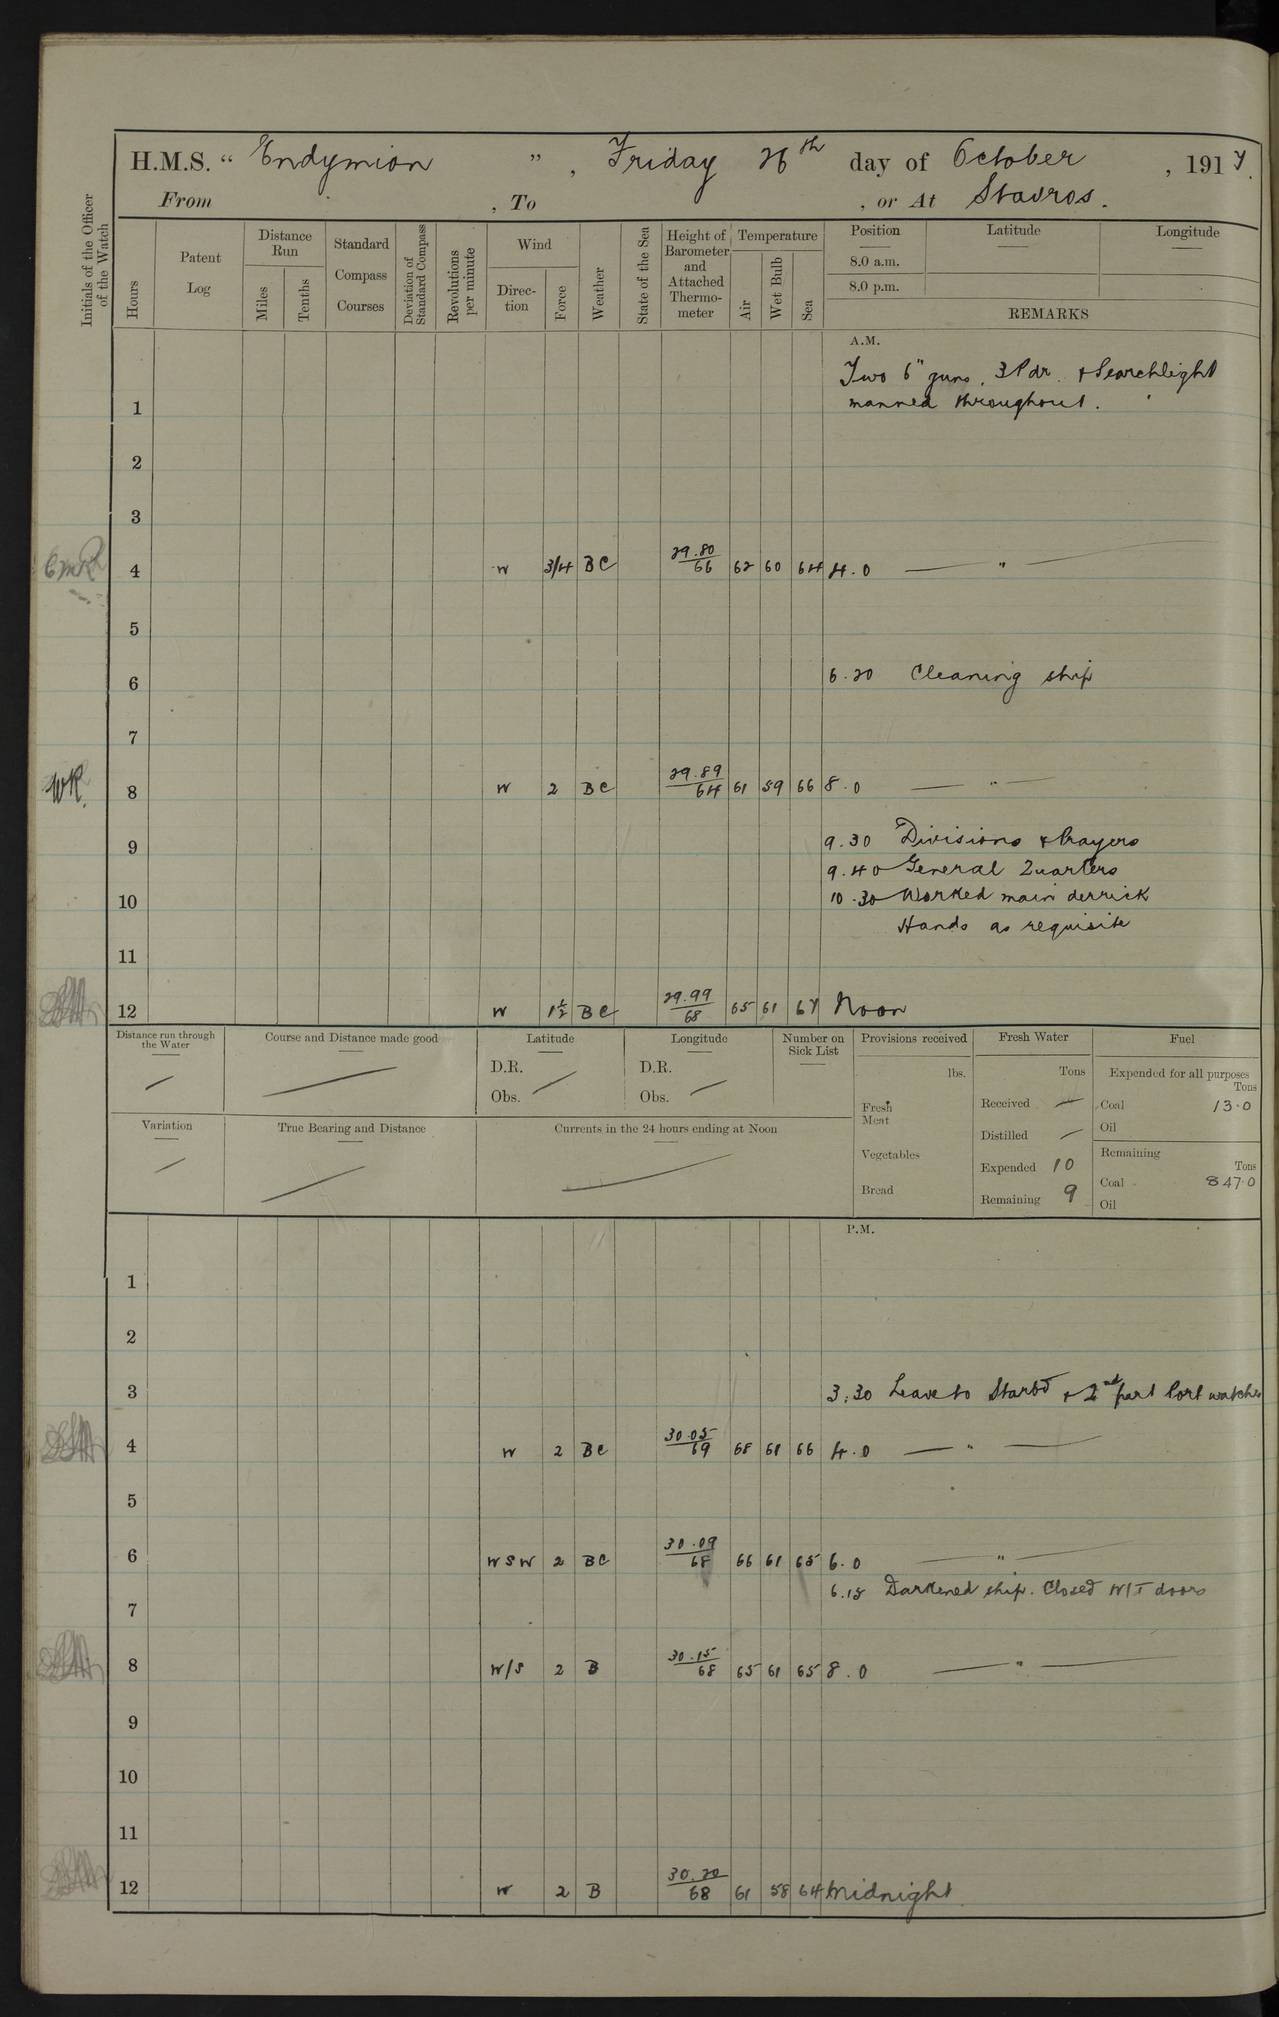 H.M.S. “ Endymion ” , Friday 26th day of October , 1917.
From , To , or At Stavros.
Initials of the Officer of the Watch
Hours
Patent Log
Distance Run
Miles
Tenths
Standard Compass Courses
Deviation of Standard Compass
Revolutions per minute
Wind
Direc-tion
Force
Weather
State of the Sea
Height of Barometer and Attached Thermo-meter
Temperature
Air
Wet Bulb
Sea
Position
8.0 a.m.
8.0 p.m.
Latitude
Longitude
REMARKS
A.M.
Two 6" guns, 3 Pdr. & Searchlight
1 manned throughout.
2
3
4 W 3/4 BC 29.80/66 62 60 64 4.0 — " —
5
6 6.20 Cleaning ship
7
WR. 8 W 2 BC 29.89/64 61 59 66 8.0 — " —
9 9.30 Divisions & Prayers
9.40 General Quarters
10 10.30 Worked main derrick
Hands as requisite
11
12 W 1½ BC 29.99/68 65 61 67 Noon
Distance run through the Water
Course and Distance made good
Latitude
D.R.
Obs.
Longitude
D.R.
Obs.
Number on Sick List
Provisions received
lbs.
Fresh Meat
Vegetables
Bread
Fresh Water
Tons
Received —
Distilled —
Expended 10
Remaining 9
Fuel
Expended for all purposes
Tons
Coal 13.0
Oil
Remaining
Tons
Coal 847.0
Oil
Variation
True Bearing and Distance
Currents in the 24 hours ending at Noon
P.M.
1
2
3 3.30 Leave to Starbd & 2nd part Port watches
4 W 2 BC 30.05/69 68 61 66 4.0 — " —
5
6 WSW 2 BC 30.09/68 66 61 65 6.0 — " —
6.15 Darkened ship. Closed W/T doors
7
8 W/S 2 B 30.15/68 65 61 65 8.0 — " —
9
10
11
12 W 2 B 30.20/68 61 58 64 Midnight